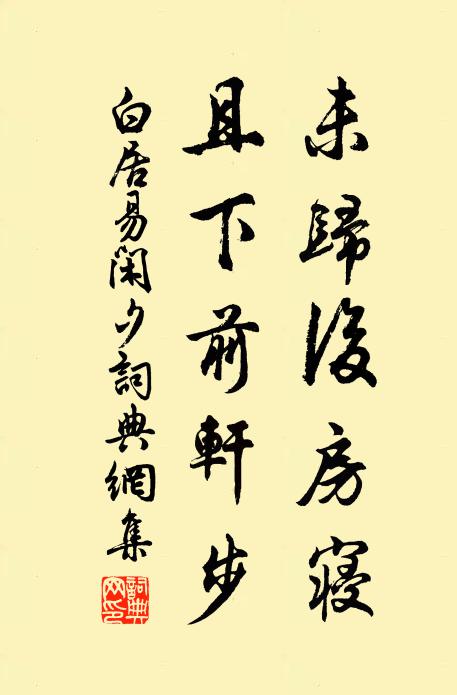 未歸後房寢
且下前軒步
白居易閑夕詞典網集
詞典網印